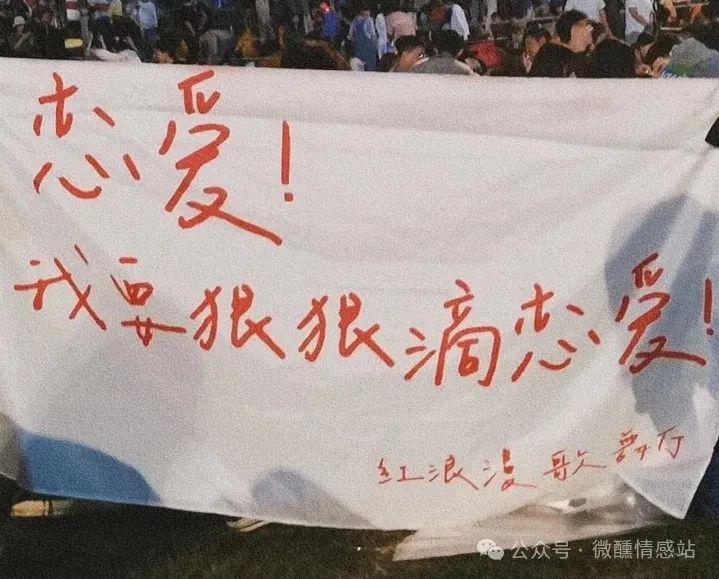 恋爱!
我要狠狠滴恋爱!
红浪漫歌舞厅
公众号·微醺情感站